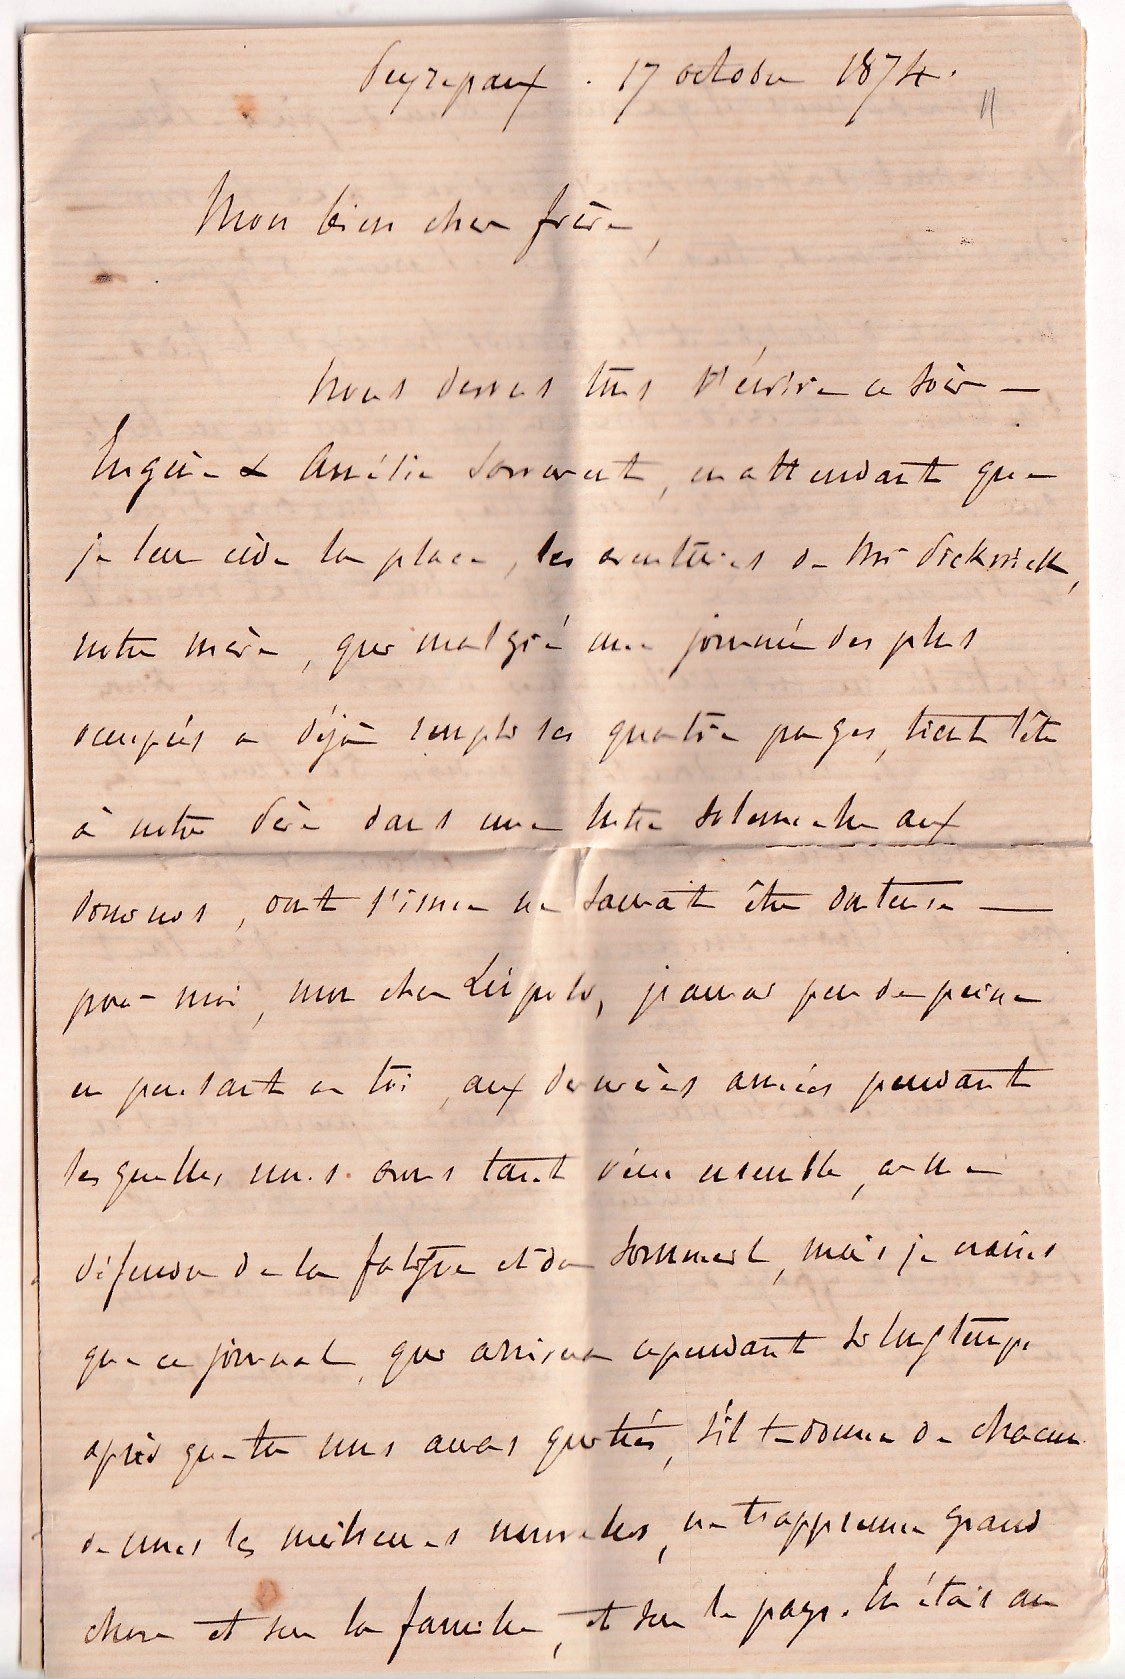 Peyrepaux . 17 octobre 1874.
Mon bien cher frère,
Nous devons tous t'écrire ce soir —
& Amélie savourent, en attendant que
je leur cède la place, les aventures de Mr Pickwick,
notre mère, qui malgré une journée des plus
occupées a déjà rempli ses quatre pages, tient tête
à notre Père dans une lutte solennelle aux
dominos, dont l'issue ne saurait être douteuse —
pour moi, mon cher Léopold, j'aurai peu de peine
en pensant à toi, aux dernières années pendant
lesquelles nous avons tant vécu ensemble, à me
défendre de la fatigue et du sommeil, mais je crains
que ce journal, qui arrivera cependant si longtemps
après que tu nous auras quittés, s'il te donne de chacun
de nous les meilleures nouvelles, ne t'apprenne grand
chose et sur la famille, et sur le pays. Tu étais au